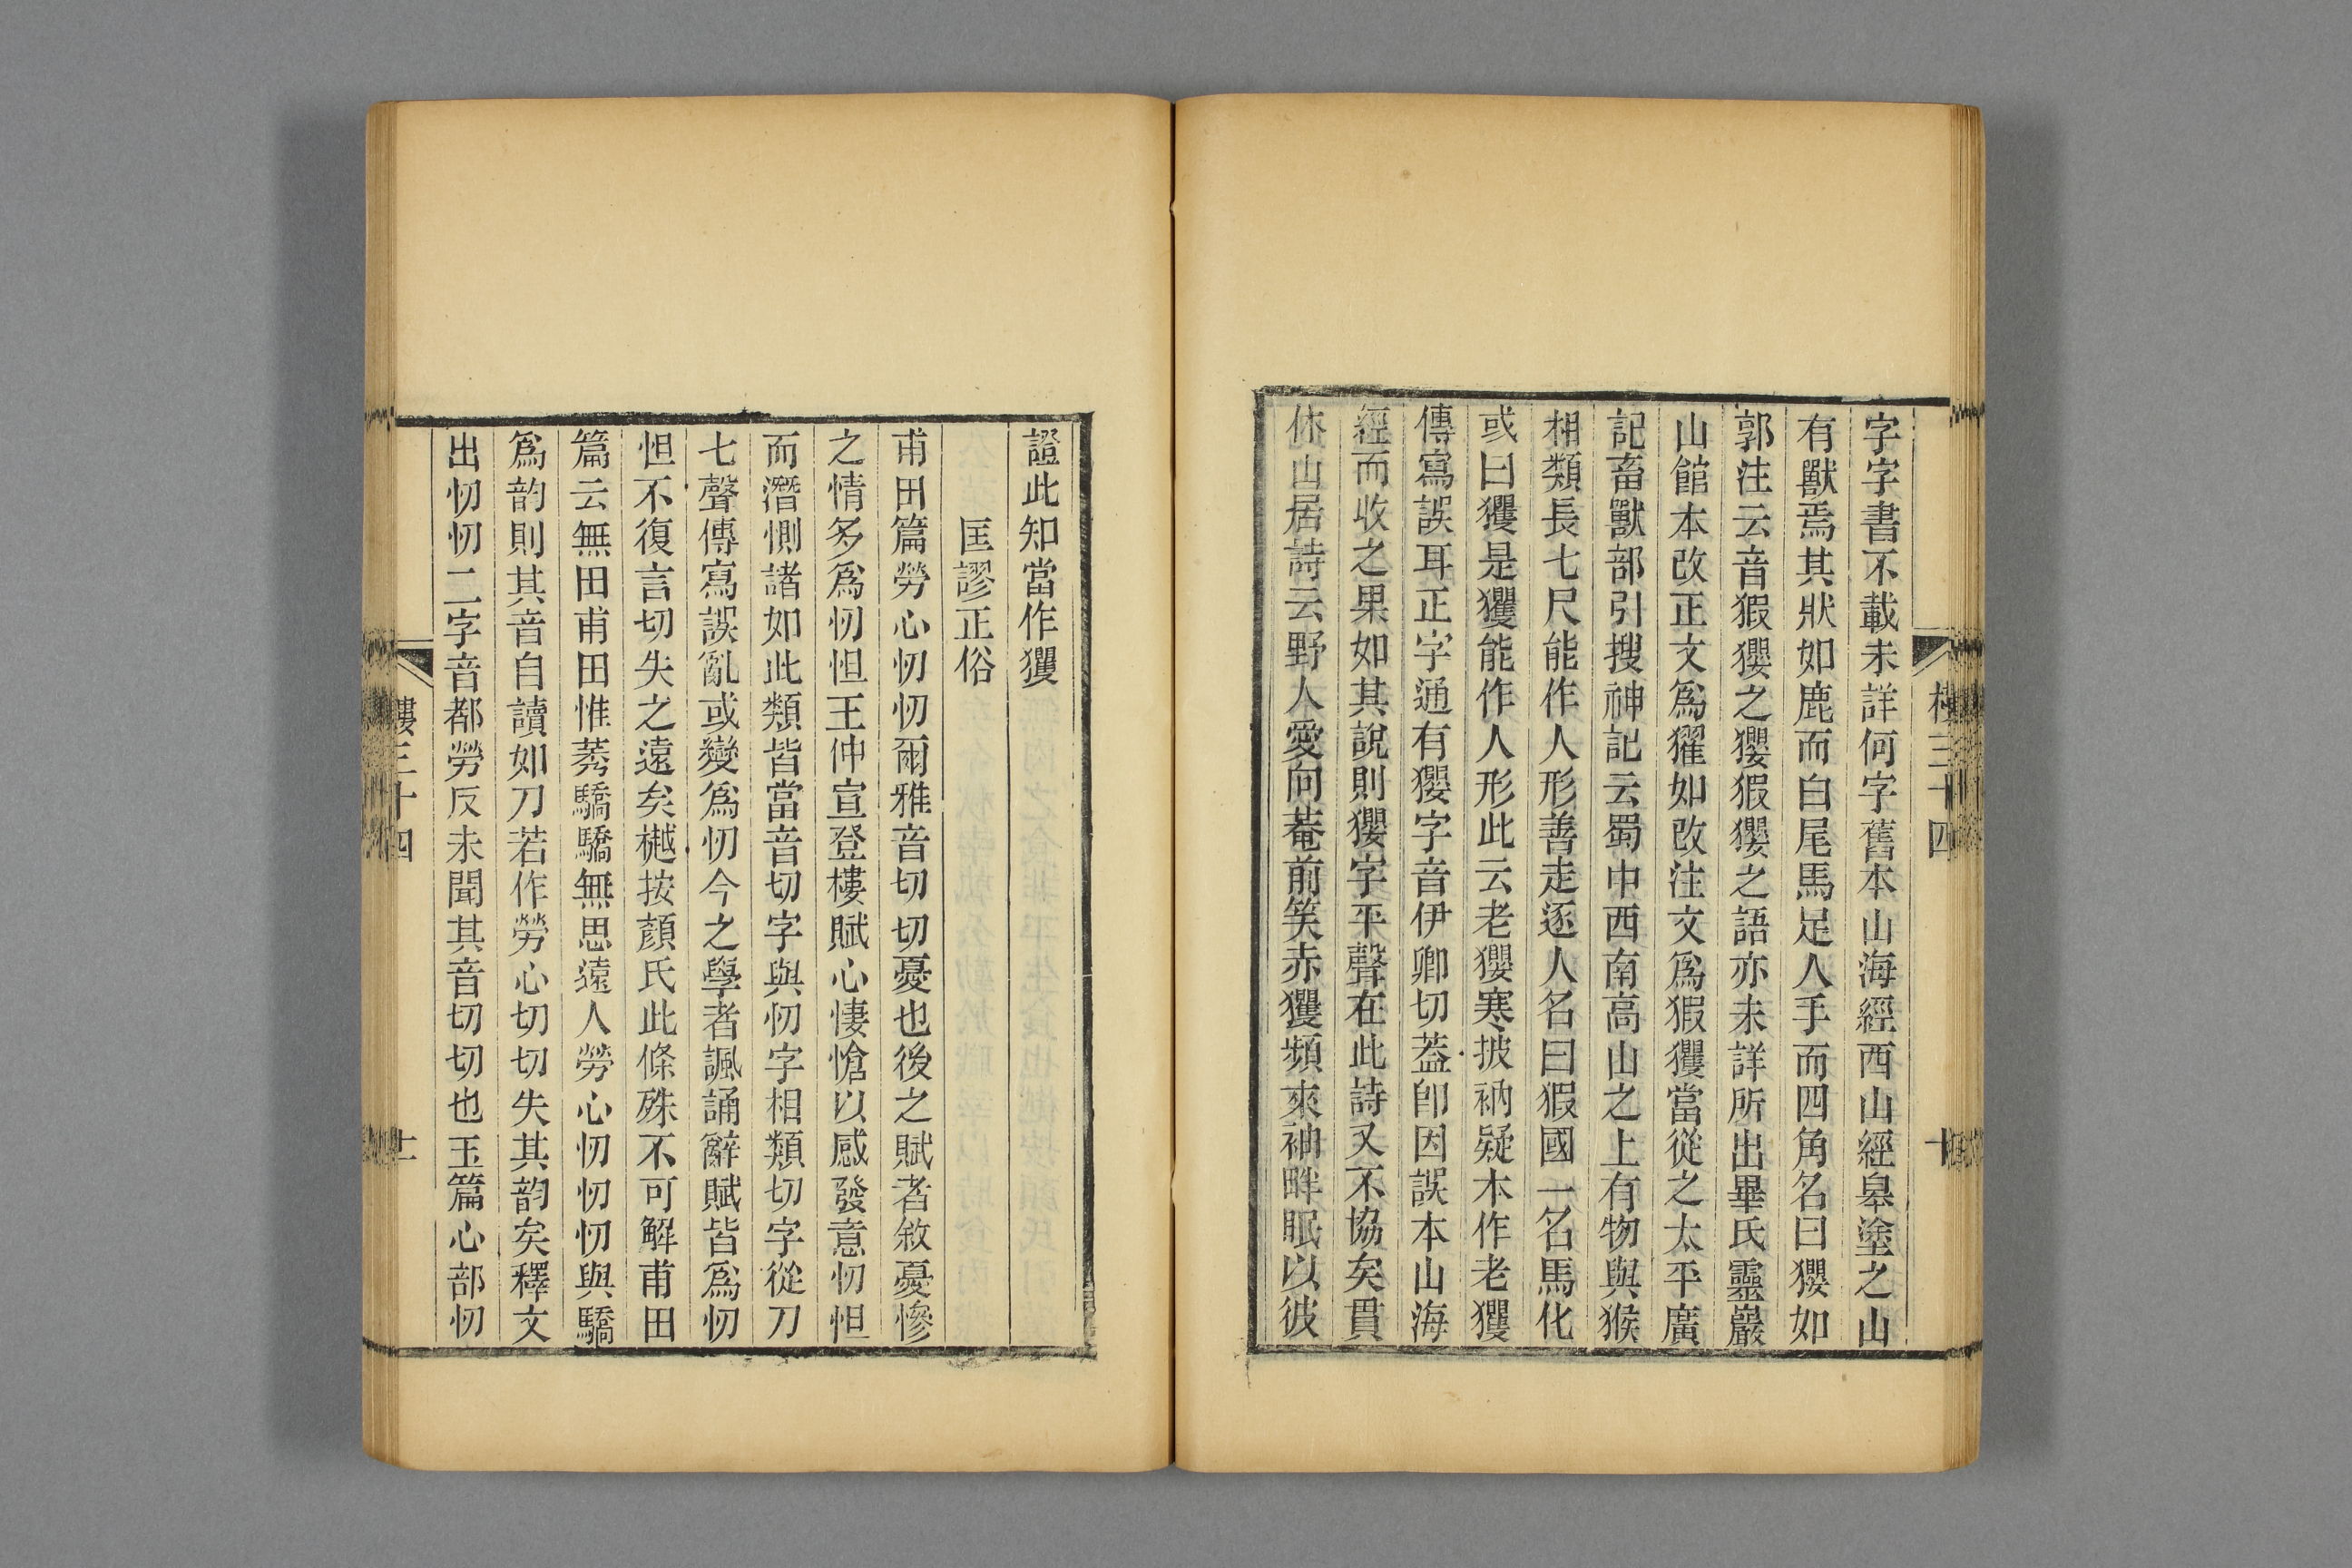 字字書不載未詳何字舊本山海經西山經臯塗之山
有獸焉其狀如鹿而白尾馬足人手而四角名曰玃如
郭注云音猳玃之玃猳玃之語亦未詳所出畢氏靈巖
山館本改正文爲㹊如改注文爲猳玃當從之太平廣
記畜獸部引搜神記云蜀中西南高山之上有物與猴
相類長七尺能作人形善走逐人名曰猳國一名馬化
或曰玃是玃能作人形此云老㹮寒披衲疑本作老玃
傳寫誤耳正字通有㹮字音伊卿切葢卽因誤本山海
經而收之果如其說則㹮字平聲在此詩又不協矣貫
休山居詩云野人愛向菴前笑赤玃頻來袖畔眠以彼
樓三十四
十
證此知當作玃
匡謬正俗
甫田篇勞心忉忉爾雅音切切憂也後之賦者敘憂慘
之情多爲忉怛王仲宣登樓賦心悽愴以感發意忉怛
而潛惻諸如此類皆當音切字與忉字相類切字從刀
七聲傳寫誤亂或變爲忉今之學者諷誦辭賦皆爲忉
怛不復言切失之遠矣樾按顏氏此條殊不可解甫田
篇云無田甫田惟莠驕驕無思遠人勞心忉忉忉與驕
爲韵則其音自讀如刀若作勞心切切失其韵矣釋文
出忉忉二字音都勞反未聞其音切切也玉篇心部忉
樓三十四